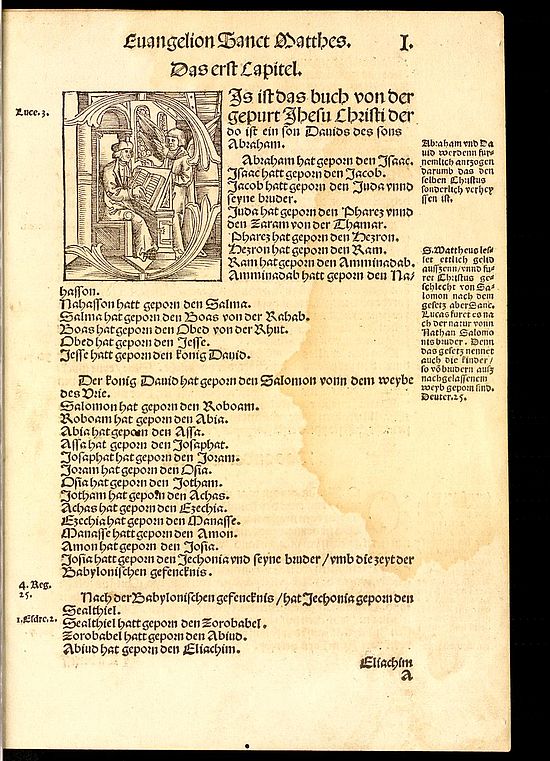 Euangelion Sanct Matthes. I.
Das erst Capitel.
Luce. 3.
Is ist das buch von der
gepurt Jhesu Christi der
do ist ein son Dauids des sons
Abraham.
Abraham hat geporn den Isaac.
Isaac hatt geporn den Jacob.
Jacob hatt geporn den Juda vnnd
seyne bruder.
Juda hat geporn den Pharez vnnd
den Zaram von der Thamar.
Pharez hat geporn den Hezron.
Hezron hat geporn den Ram.
Ram hat geporn den Amminadab.
Amminadab hatt geporn den Na/
hasson.
Nahasson hatt geporn den Salma.
Salma hat geporn den Boas von der Rahab.
Boas hat geporn den Obed von der Rhut.
Obed hat geporn den Jesse.
Jesse hatt geporn den konig Dauid.
Der konig Dauid hat geporn den Salomon vonn dem weybe
des Vrie.
Salomon hat geporn den Roboam.
Roboam hat geporn den Abia.
Abia hat geporn den Assa.
Assa hat geporn den Josaphat.
Josaphat hat geporn den Joram.
Joram hat geporn den Osia.
Osia hat geporn den Jotham.
Jotham hat geporn den Achas.
Achas hat geporn den Ezechia.
Ezechia hat geporn den Manasse.
Manasse hatt geporn den Amon.
Amon hat geporn den Josia.
Josia hatt geporn den Jechonia vnd seyne bruder / vmb die zeyt der
Babylonischen gefencknis.
4. Reg.
25.
Nach der Babylonischen gefencknis / hat Jechonia geporn den
Sealthiel.
1. Esdre. 2.
Sealthiel hatt geporn den Zorobabel.
Zorobabel hatt geporn den Abiud.
Abiud hat geporn den Eliachim.
Eliachim
A
Abraham vnd Da
uid werdenn fur-
nemlich antzogen
darumb das den
selben Christus
sonderlich verhey
ssen ist.
S. Mattheus les-
set ettlich gelid
aussen / vnnd fu-
ret Christus ge-
schlecht von Sa-
lomon nach dem
gesetz aber Sanc.
Lucas furet es na
ch der natur vonn
Nathan Salomo
nis bruder. Denn
das gesetz nennet
auch die kinder /
so vō brudern auß
nachgelassenem
weyb geporn sind.
Deuter. 25.